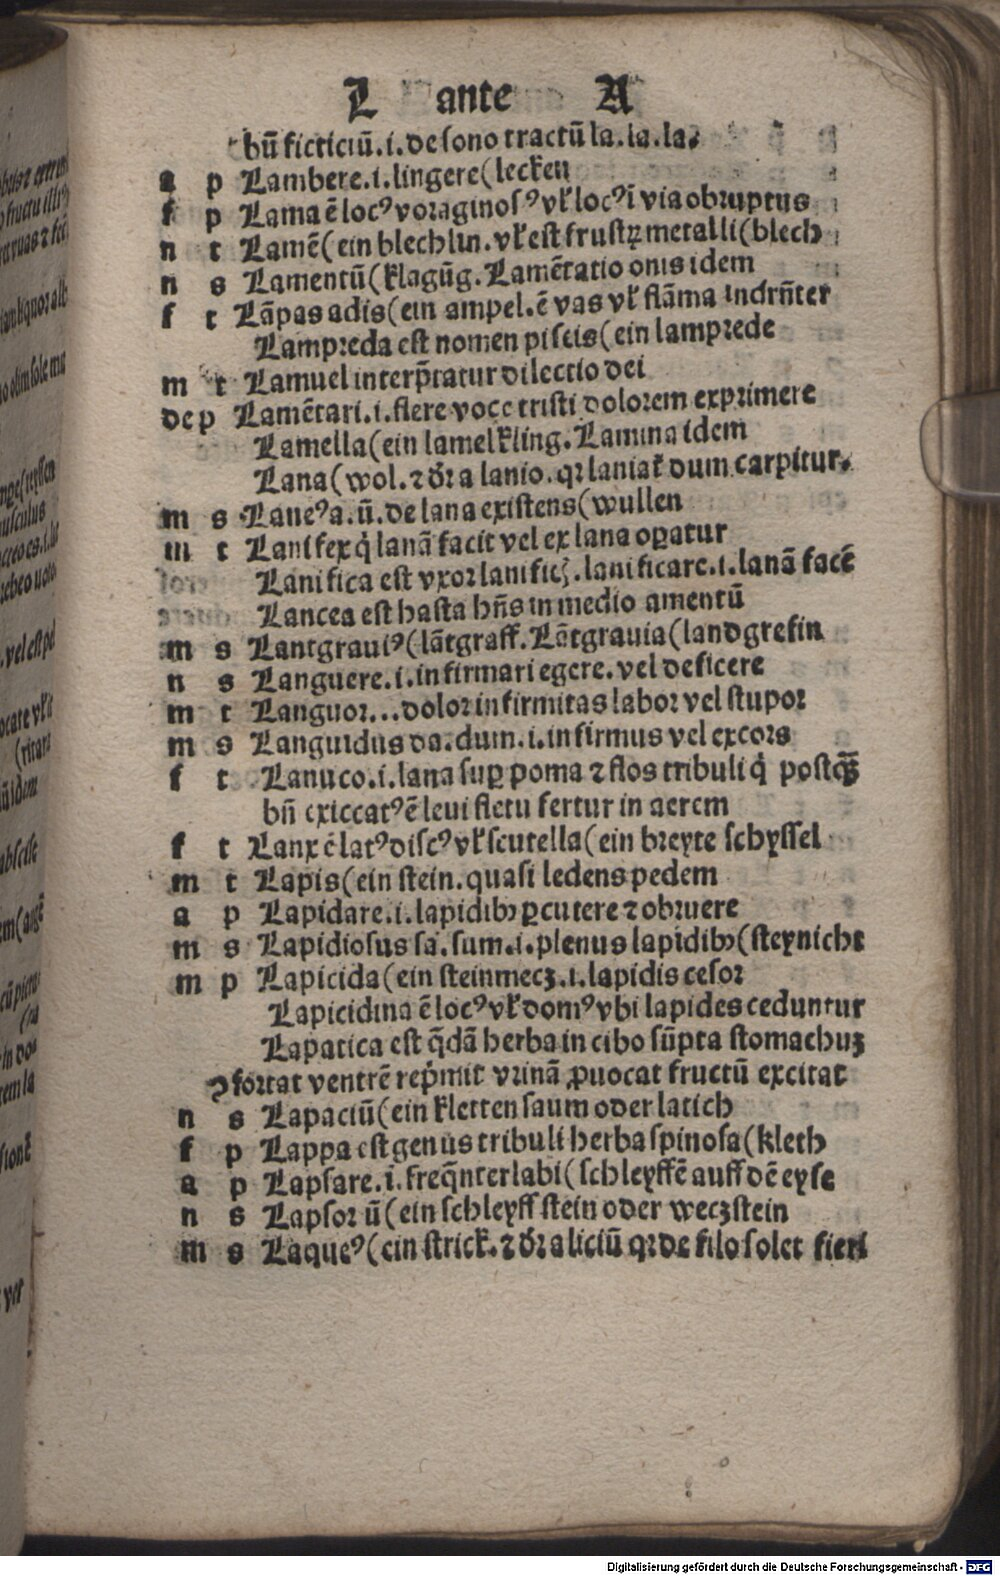 L ante A
bū ficticiū.i.de sono tractū la.la.la.
a p Lambere.i.lingere(lecken
f p Lama ē locꝰ voraginosꝰ vl̕ locꝰ ī via obruptus
n t Lamē(ein blechlin.vl̕ est frustꝝ metalli(blech
n s Lamentū(klagūg.Lamētatio onis idem
f t Lāpas adis(ein ampel.ē vas vl̕ flāma
Lampreda est nomen piscis(ein lamprede
m t Lamuel interp̄tatur dilectio dei
de p Lamētari.i.flere voce tristi dolorem exprimere
Lamella(ein lamelkling.Lamina idem
Lana(wol.⁊ dr̄ a lanio.qr laniat̄ dum carpitur.
m s Laneꝰ a.ū.de lana existens(wullen
m t Lanifex q̇ lanā facit vel ex lana oꝑatur
Lanifica est vxor lanificꝭ.lanificare.i.lanā facē
Lancea est hasta hn̄s in medio amentū
m s Lantgrauiꝰ(lātgraff.Lātgrauia(landgrefin
n s Languere.i.infirmari egere.vel deficere
m t Languor...dolor infirmitas labor vel stupor
m s Languidus da.dum.i.infirmus vel excors
f t Lanuco.i.lana suꝑ poma ⁊ flos tribuli q̇ postq̄ꝫ
bn̄ exiccatꝰ ē leui fletu fertur in aerem
f t Lanx ē latꝰ discꝰ vl̕ scutella(ein breyte schyssel
m t Lapis(ein stein.quasi ledens pedem
a p Lapidare.i.lapidibꝫ ꝑcutere ⁊ obruere
m s Lapidiosus sa.sum.i.plenus lapidibꝫ(steynicht
m p Lapicida(ein steinmecz.i.lapidis cesor
Lapicidina ē locꝰ vl̕ domꝰ vbi lapides ceduntur
Lapatica est q̄dā herba in cibo sūpta stomachuꝫ
ꝯfortat ventrē rep̄mit vrinā ꝓuocat fructū excitat
n s Lapaciū(ein kletten saum oder latich
f p Lappa est genus tribuli herba spinosa(kleth
a p Lapsare.i.freq̄nter labi(schleyffē auff dē eyse
n s Lapsor ū(ein schleyff stein oder weczstein
m s Laqueꝰ(ein strick.⁊ dr̄ a liciū qr de filo solet fieri
Digitalisierung gefördert durch die Deutsche Forschungsgemeinschaft - DFG